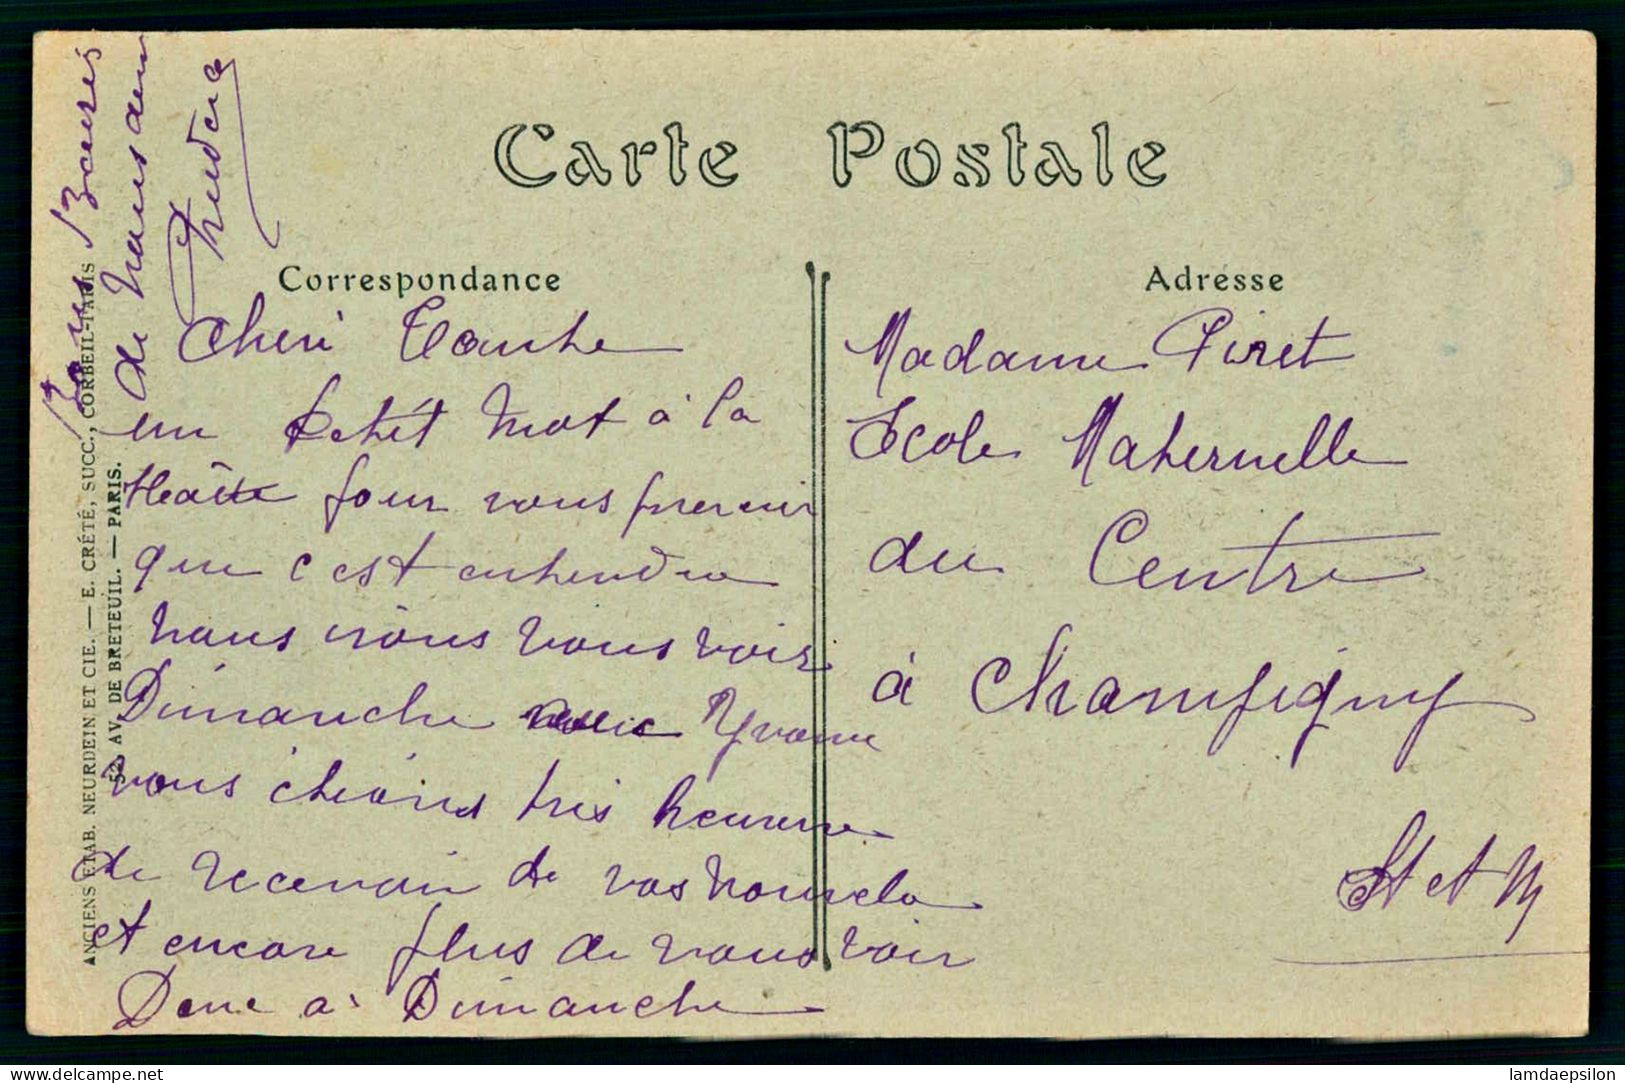 Carte Postale
Correspondance
Cheri Tante
un petit mot à la
Hatte pour vous prevenir
que c est entendu
nous irons vous voir
Dimanche avec Yvonne
vous étions très heureuse
de recevoir de vos nouvela
et encore plus de vous voir
Donc à Dimanche
Bons Baisers
de nous deux
Adresse
Madame Piret
Ecole Maternelle
du Centre
à Champigny
St et M
ANCIENS ETAB. NEURDEIN ET CIE. — E. CRÉTÉ, SUCC., CORBEIL-PARIS
52, AV. DE BRETEUIL. — PARIS.
delcampe.net
lamdaepsilon